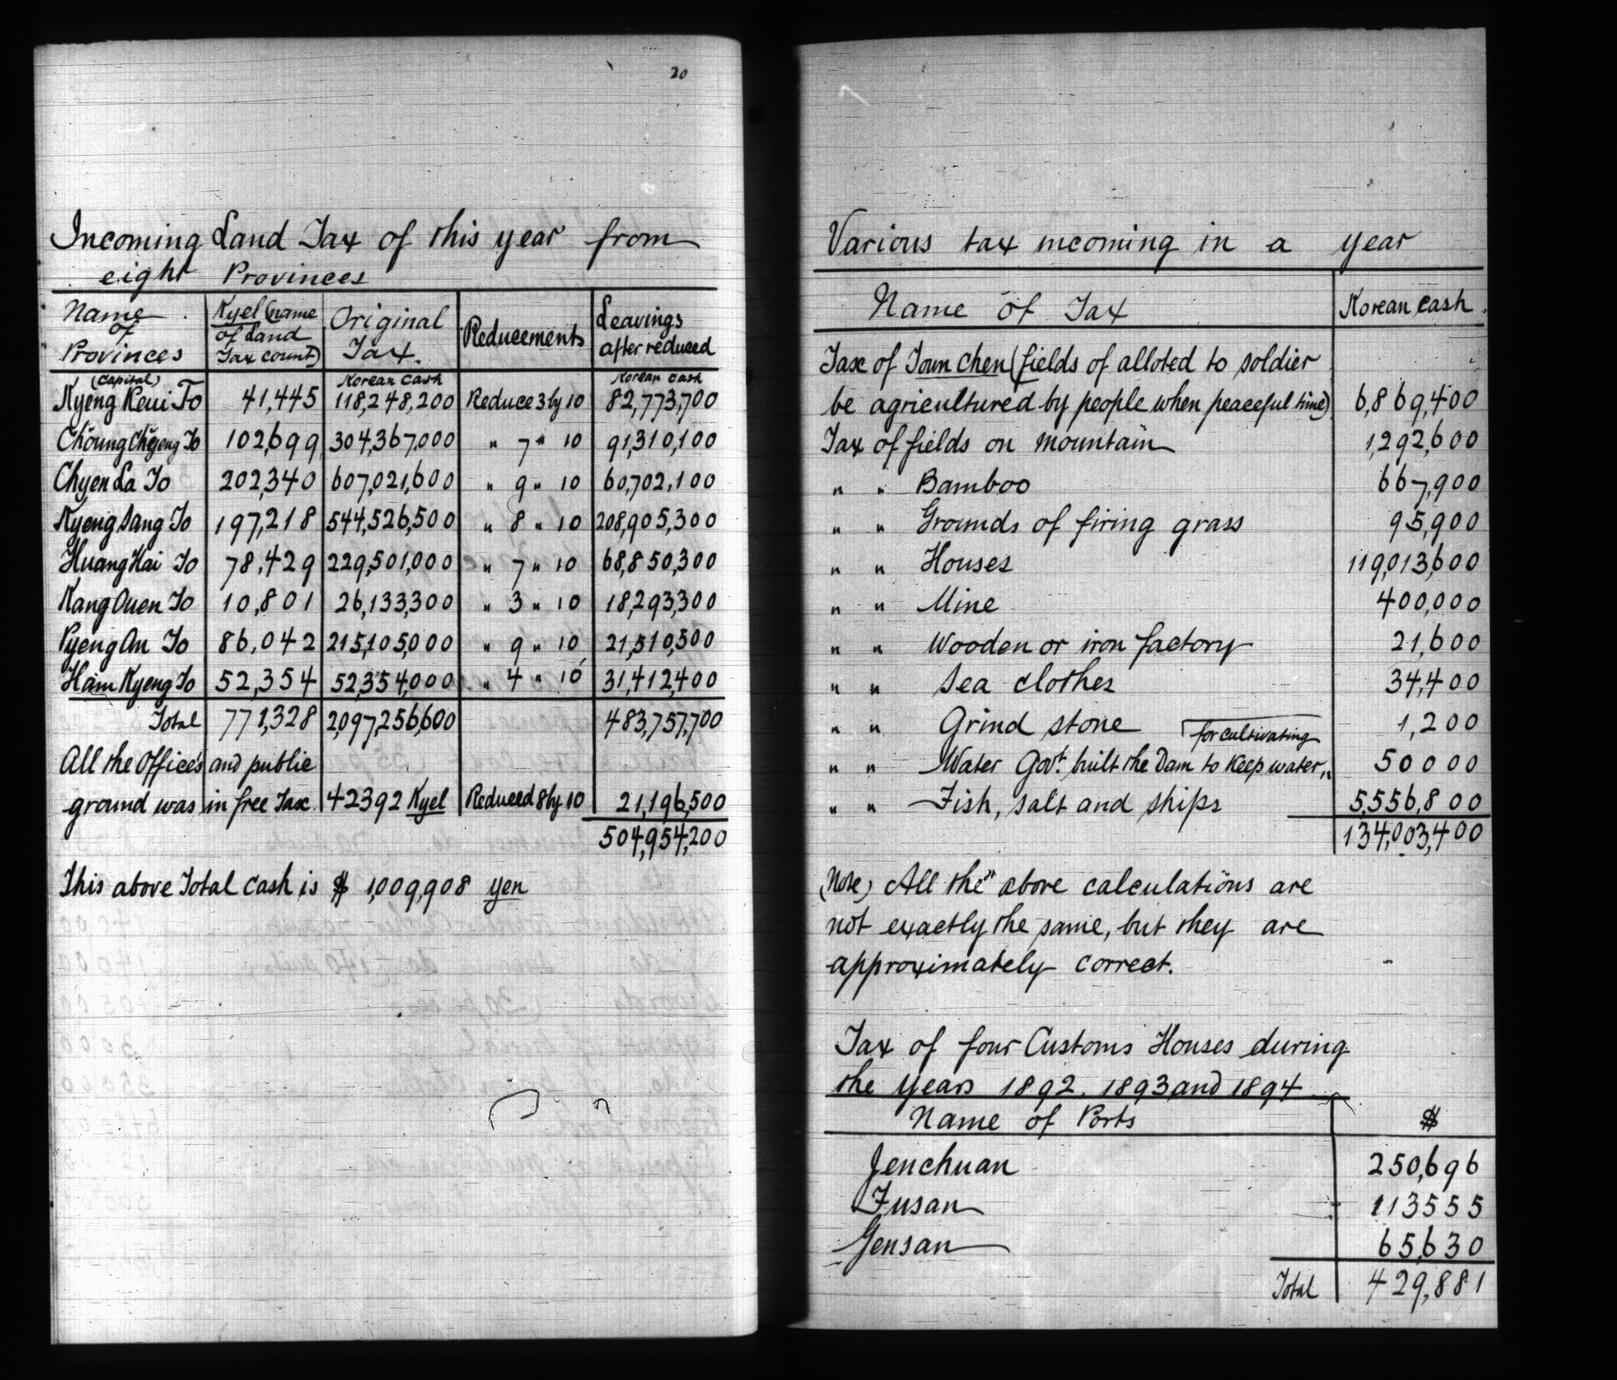 20
Incoming Land Tax of this year from
eight Provinces
Name of Provinces | Kyel (name of Land Tax count) | Original Tax. | Reducements | Leavings after reduced
(Capital) | Korean Cash | Korean cash
Kyeng Keui To | 41,445 | 118,248,200 | Reduce 3 by 10 | 82,773,700
Choung Chyeng To | 102,699 | 304,367,000 | " 7 " 10 | 91,310,100
Chyen La To | 202,340 | 607,021,600 | " 9 " 10 | 60,702,100
Kyeng Sang To | 197,218 | 544,526,500 | " 8 " 10 | 208,905,300
Huang Hai To | 78,429 | 229,501,000 | " 7 " 10 | 68,850,300
Kang Ouen To | 10,801 | 26,133,300 | " 3 " 10 | 18,293,300
Pyeng An To | 86,042 | 215,105,000 | " 9 " 10 | 21,510,500
Ham Kyeng To | 52,354 | 52,354,000 | " 4 " 10 | 31,412,400
Total | 771,328 | 2,097,256,600 | 483,757,700
All the Offices and public
ground was in free Tax | 42392 Kyel | Reduced 8 by 10 | 21,196,500
504,954,200
This above Total Cash is $ 1,009,908 yen
Various tax incoming in a year
Name of Tax | Korean Cash.
Tax of Toun chen (fields of alloted to soldier
be agricultured by people when peaceful time) | 6,869,400
Tax of fields on mountain | 1,292,600
" " Bamboo | 667,900
" " Grounds of firing grass | 95,900
" " Houses | 119,013,600
" " Mine | 400,000
" " Wooden or iron factory | 21,600
" " Sea clothes | 34,400
" " Grind stone | 1,200
for cultivating
" " Water Govt. built the Dam to keep water,, | 50000
" " Fish, salt and ships | 5,556,800
134,003,400
(Note) All the above calculations are
not exactly the same, but they are
approximately correct.
Tax of four Customs Houses during
the years 1892. 1893 and 1894
Name of Ports | $
Jenchuan | 250,696
Fusan | 113555
Gensan | 65,630
Total | 429,881